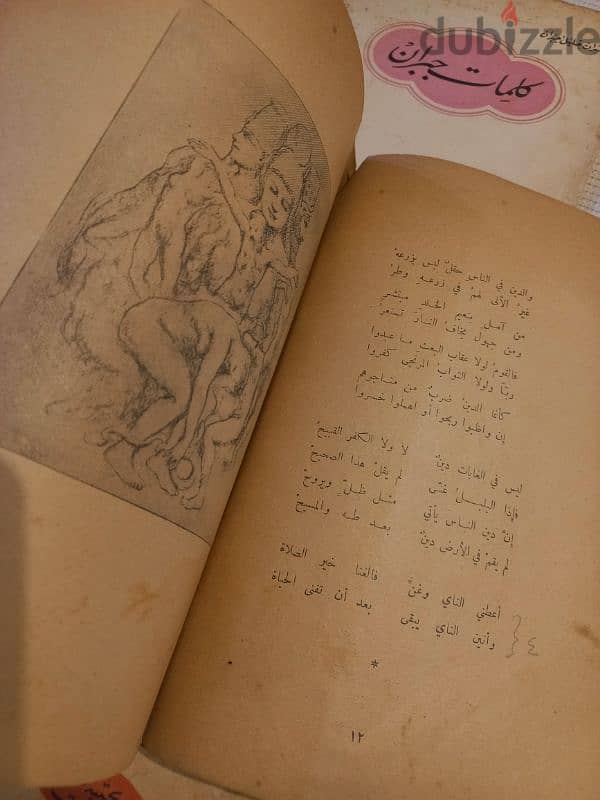 dubizzle
جبران خليل جبران
كلمات جبران
والدين في الناس حقل ليس يزرعه
غير الألى لهم في زرعه وطر
من آمل بنعيم الخلد مبتشر
ومن جهول يخاف النار تستعر
فالقوم لولا عقاب البعث ما عبدوا
ربا ولولا الثواب المرتجى كفروا
كأنما الدين ضرب من متاجرهم
إن واظبوا ربحوا أو أهملوا خسروا
ليس في الغابات دين لا ولا الكفر القبيح
فإذا البلبل غنى لم يقل هذا الصحيح
إن دين الناس يأتي مثل ظل ويروح
لم يقم في الأرض دين بعد طه والمسيح
أعطني الناي وغن فالغنا خير الصلاة
وأنين الناي يبقى بعد أن تفنى الحياة
٤
*
١٢